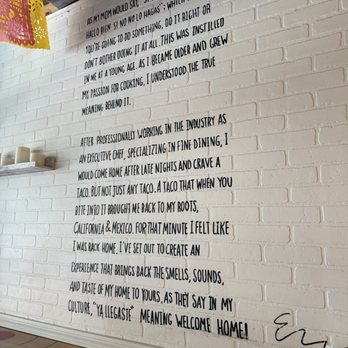 AS MY MOM WOULD SAY, "SI
HAZLO BIEN. SI NO NO LO HAGAS"; WHICH
YOU'RE GOING TO DO SOMETHING, DO IT RIGHT OR
DON'T BOTHER DOING IT AT ALL. THIS WAS INSTILLED
IN ME AT A YOUNG AGE. AS I BECAME OLDER AND GREW
MY PASSION FOR COOKING, I UNDERSTOOD THE TRUE
MEANING BEHIND IT.
AFTER PROFESSIONALLY WORKING IN THE INDUSTRY AS
AN EXECUTIVE CHEF, SPECIALIZING IN FINE DINING, I
WOULD COME HOME AFTER LATE NIGHTS AND CRAVE A
TACO. BUT NOT JUST ANY TACO. A TACO THAT WHEN YOU
BITE INTO IT BROUGHT ME BACK TO MY ROOTS,
CALIFORNIA & MEXICO. FOR THAT MINUTE I FELT LIKE
I WAS BACK HOME. I'VE SET OUT TO CREATE AN
EXPERIENCE THAT BRINGS BACK THE SMELLS, SOUNDS,
AND TASTE OF MY HOME TO YOURS. AS THEY SAY IN MY
CULTURE, "YA LLEGASTE" MEANING WELCOME HOME!